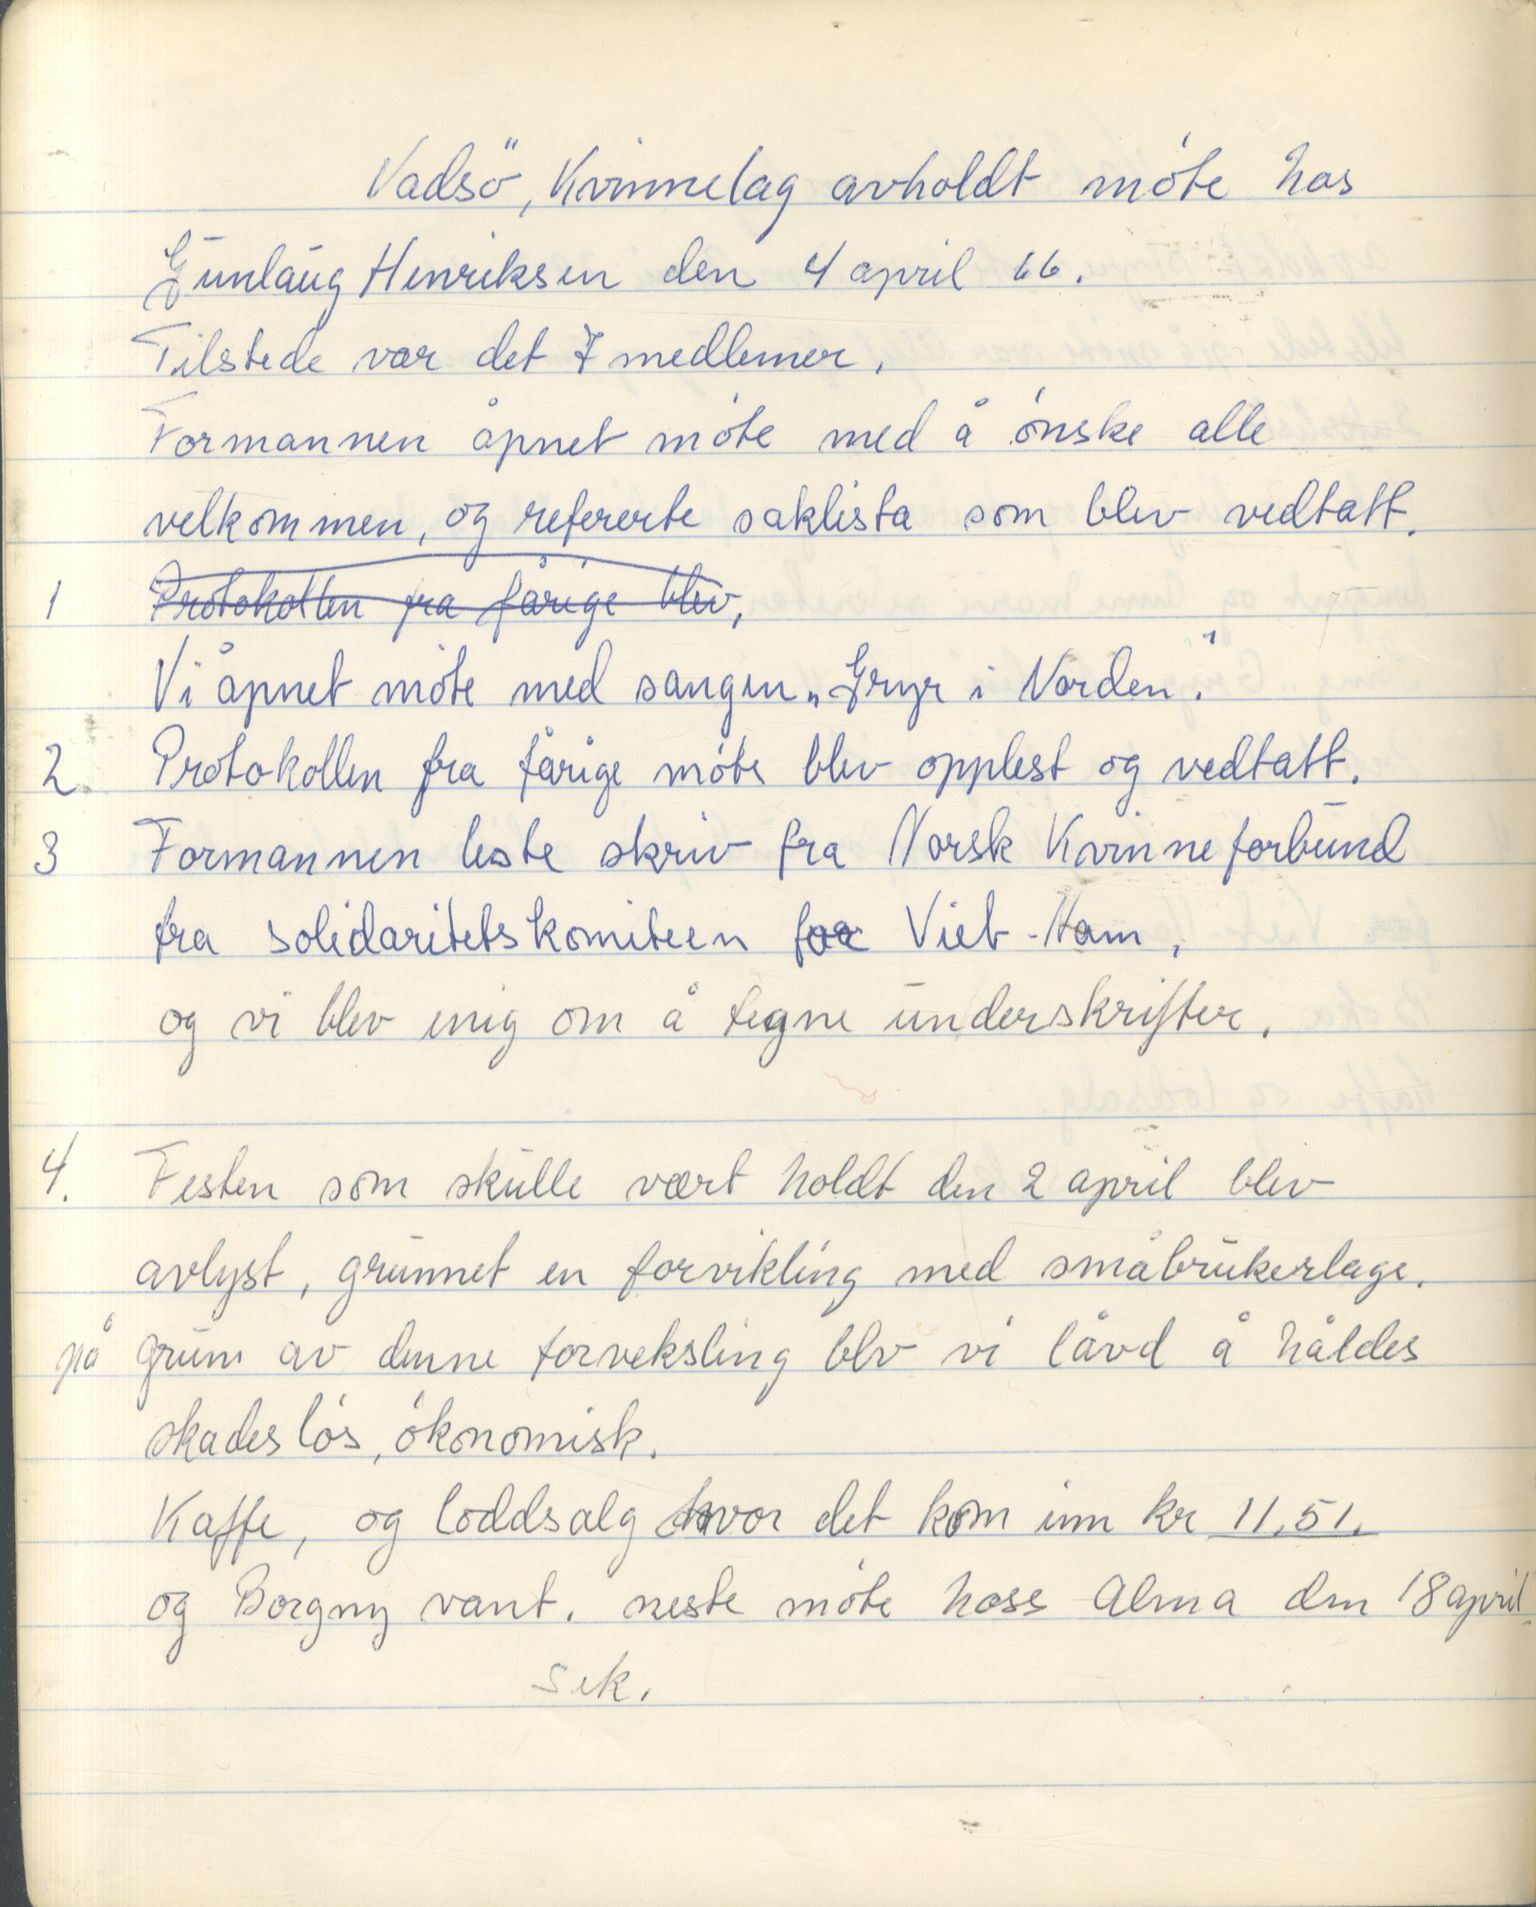 Vadsö, Kvinnelag avholdt möte hos
Gunlaug Henriksen den 4 april 66.
Tilstede var det 7 medlemer.
Formannen åpnet möte med å önske alle
velkommen, og refererte saklista som blev vedtatt.
1 Protokollen fra fårige blev,
Vi åpnet möte med sangen „Gryr i Norden".
2 Protokollen fra fårige möte blev opplest og vedtatt.
3 Formannen leste skriv fra Norsk Kvinneforbund
fra solidaritetskomiteen for Viet-Nam,
og vi blev enig om å tegne underskrifter.
4. Festen som skulle vært holdt den 2 april blev
avlyst, grunnet en forvikling med småbrukerlage.
på grunn av denne forveksling blv vi låvd å håldes
skadeslös, ökonomisk.
Kaffe, og loddsalg hvor det kom inn kr 11,51.
og Borgny vant. neste möte hoss Alma den 18 april
Sek.